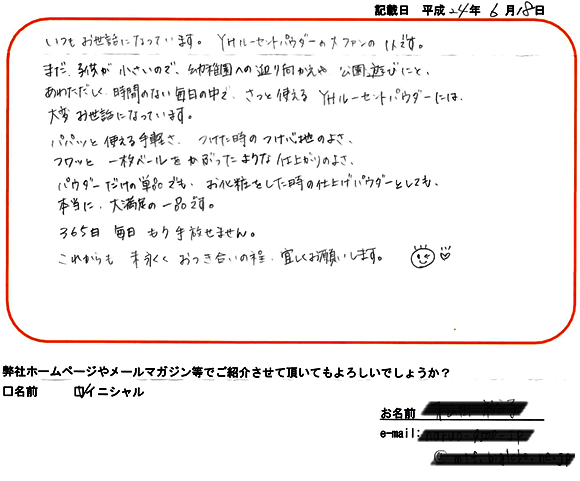 記載日 平成 24年 6月18日
いつもお世話になっています。 YHルーセントパウダーの大ファンの1人です。
まだ、子供が小さいので、幼稚園への送り向かえや 公園遊びにと、
あわただしく、時間のない毎日の中で、さっと使える YHルーセントパウダーには、
大変お世話になっています。
パパッと使える手軽さ、つけた時のつけ心地のよさ、
フワッと一枚ベールをかぶったような仕上がりのよさ、
パウダーだけの単品でも、お化粧をした時の仕上げパウダーとしても、
本当に、大満足の一品です。
365日 毎日 もう手放せません。
これからも 末永く おつき合いの程、宜しくお願いします。
弊社ホームページやメールマガジン等でご紹介させて頂いてもよろしいでしょうか？
□名前 ☑イニシャル
お名前
e-mail: